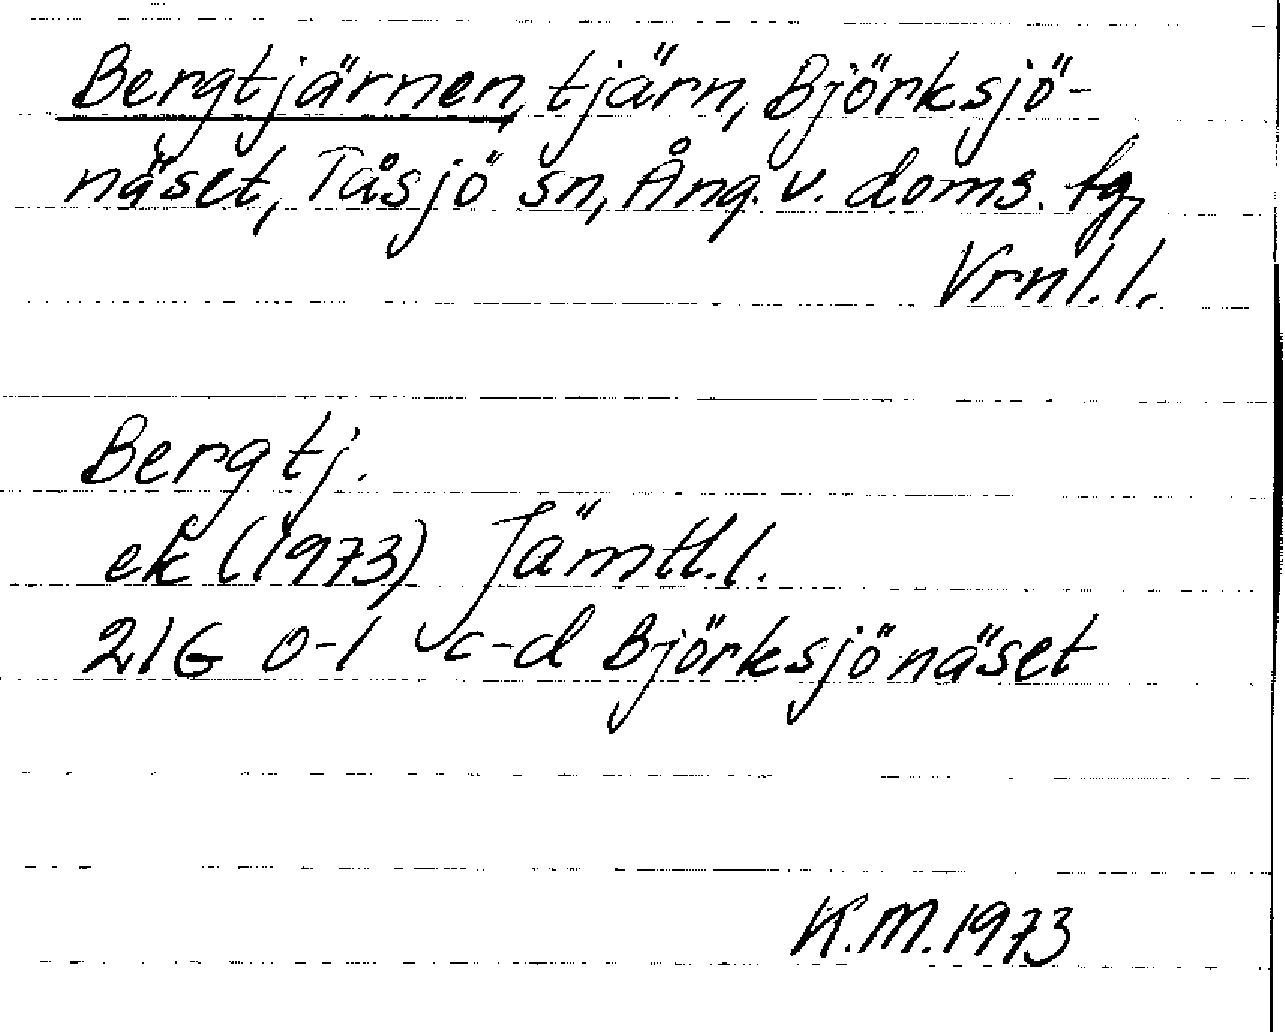 Bergtjärnen, tjärn, Björksjö-
näset, Tåsjö sn, Ång. v. doms. tg,
Vrnl. l.
Bergtj.
ek (1973) Jämtl. l.
21G 0-1 c-d Björksjönäset
K.M. 1973